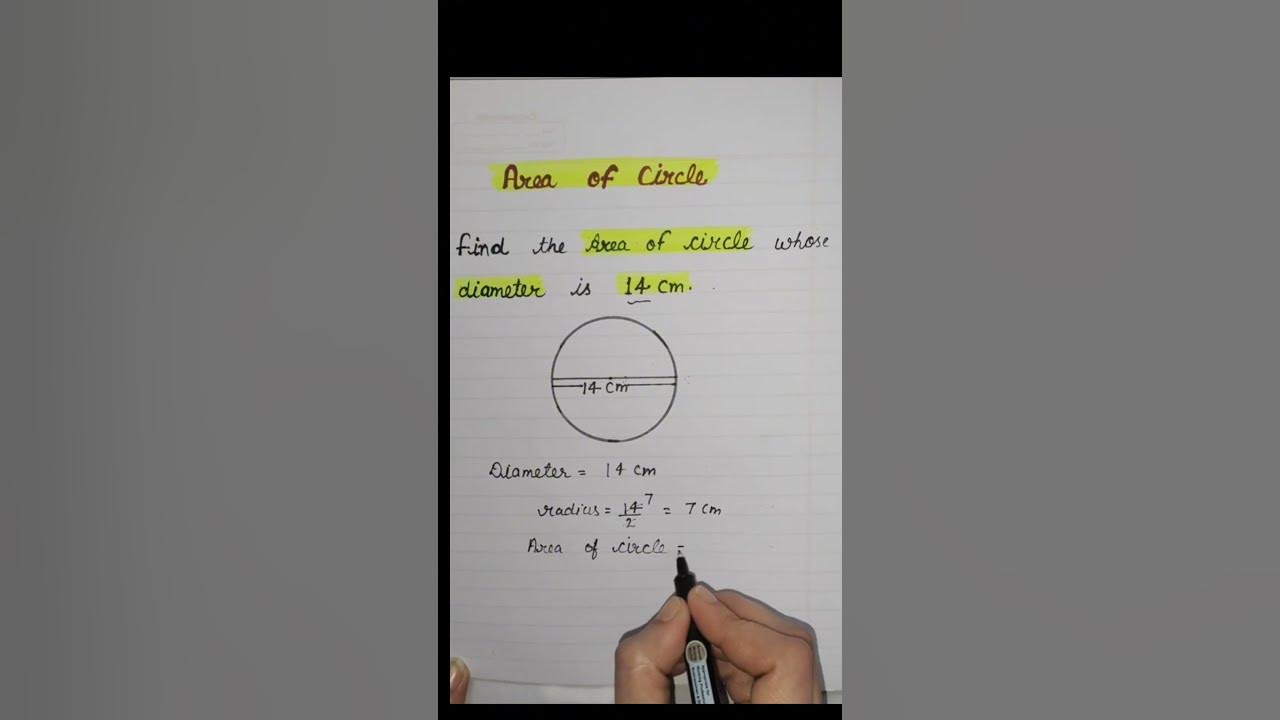 Area of Circle
find the Area of circle whose
diameter is 14 cm.
14 cm
Diameter = 14 cm
radius = 14/2 7 = 7 cm
Area of circle =